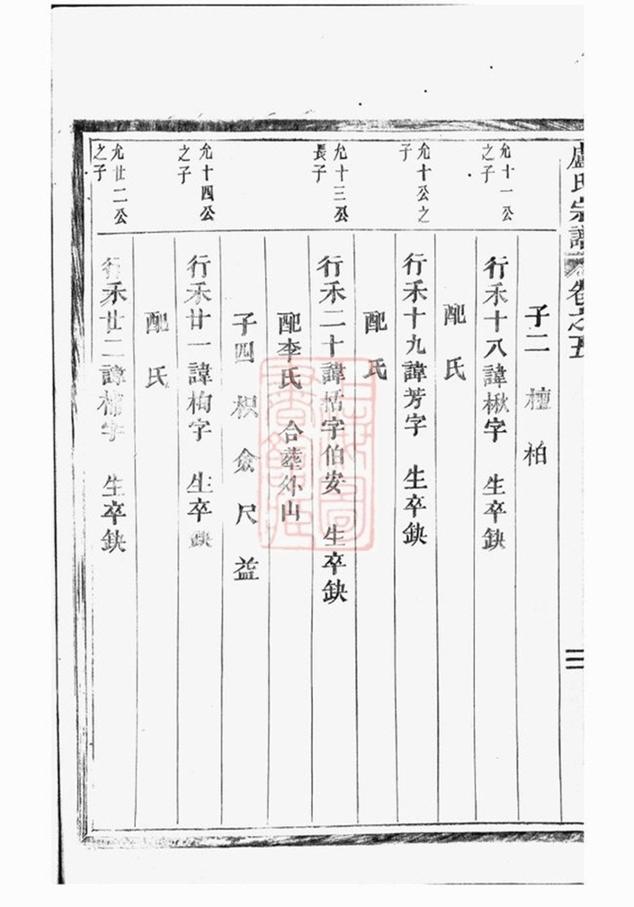 盧氏宗譜 卷之五
子二 檀 柏
允十一公之子
行禾十八諱楸字 生卒缺
配 氏
允十公之子
行禾十九諱芳字 生卒缺
配 氏
允十三公長子
行禾二十諱 字伯安 生卒缺
配李氏 合葬外山
子四 枳 僉 尺 益
允十四公之子
行禾廿一諱栒字 生卒缺
配 氏
允廿二公之子
行禾廿二諱 字 生卒缺